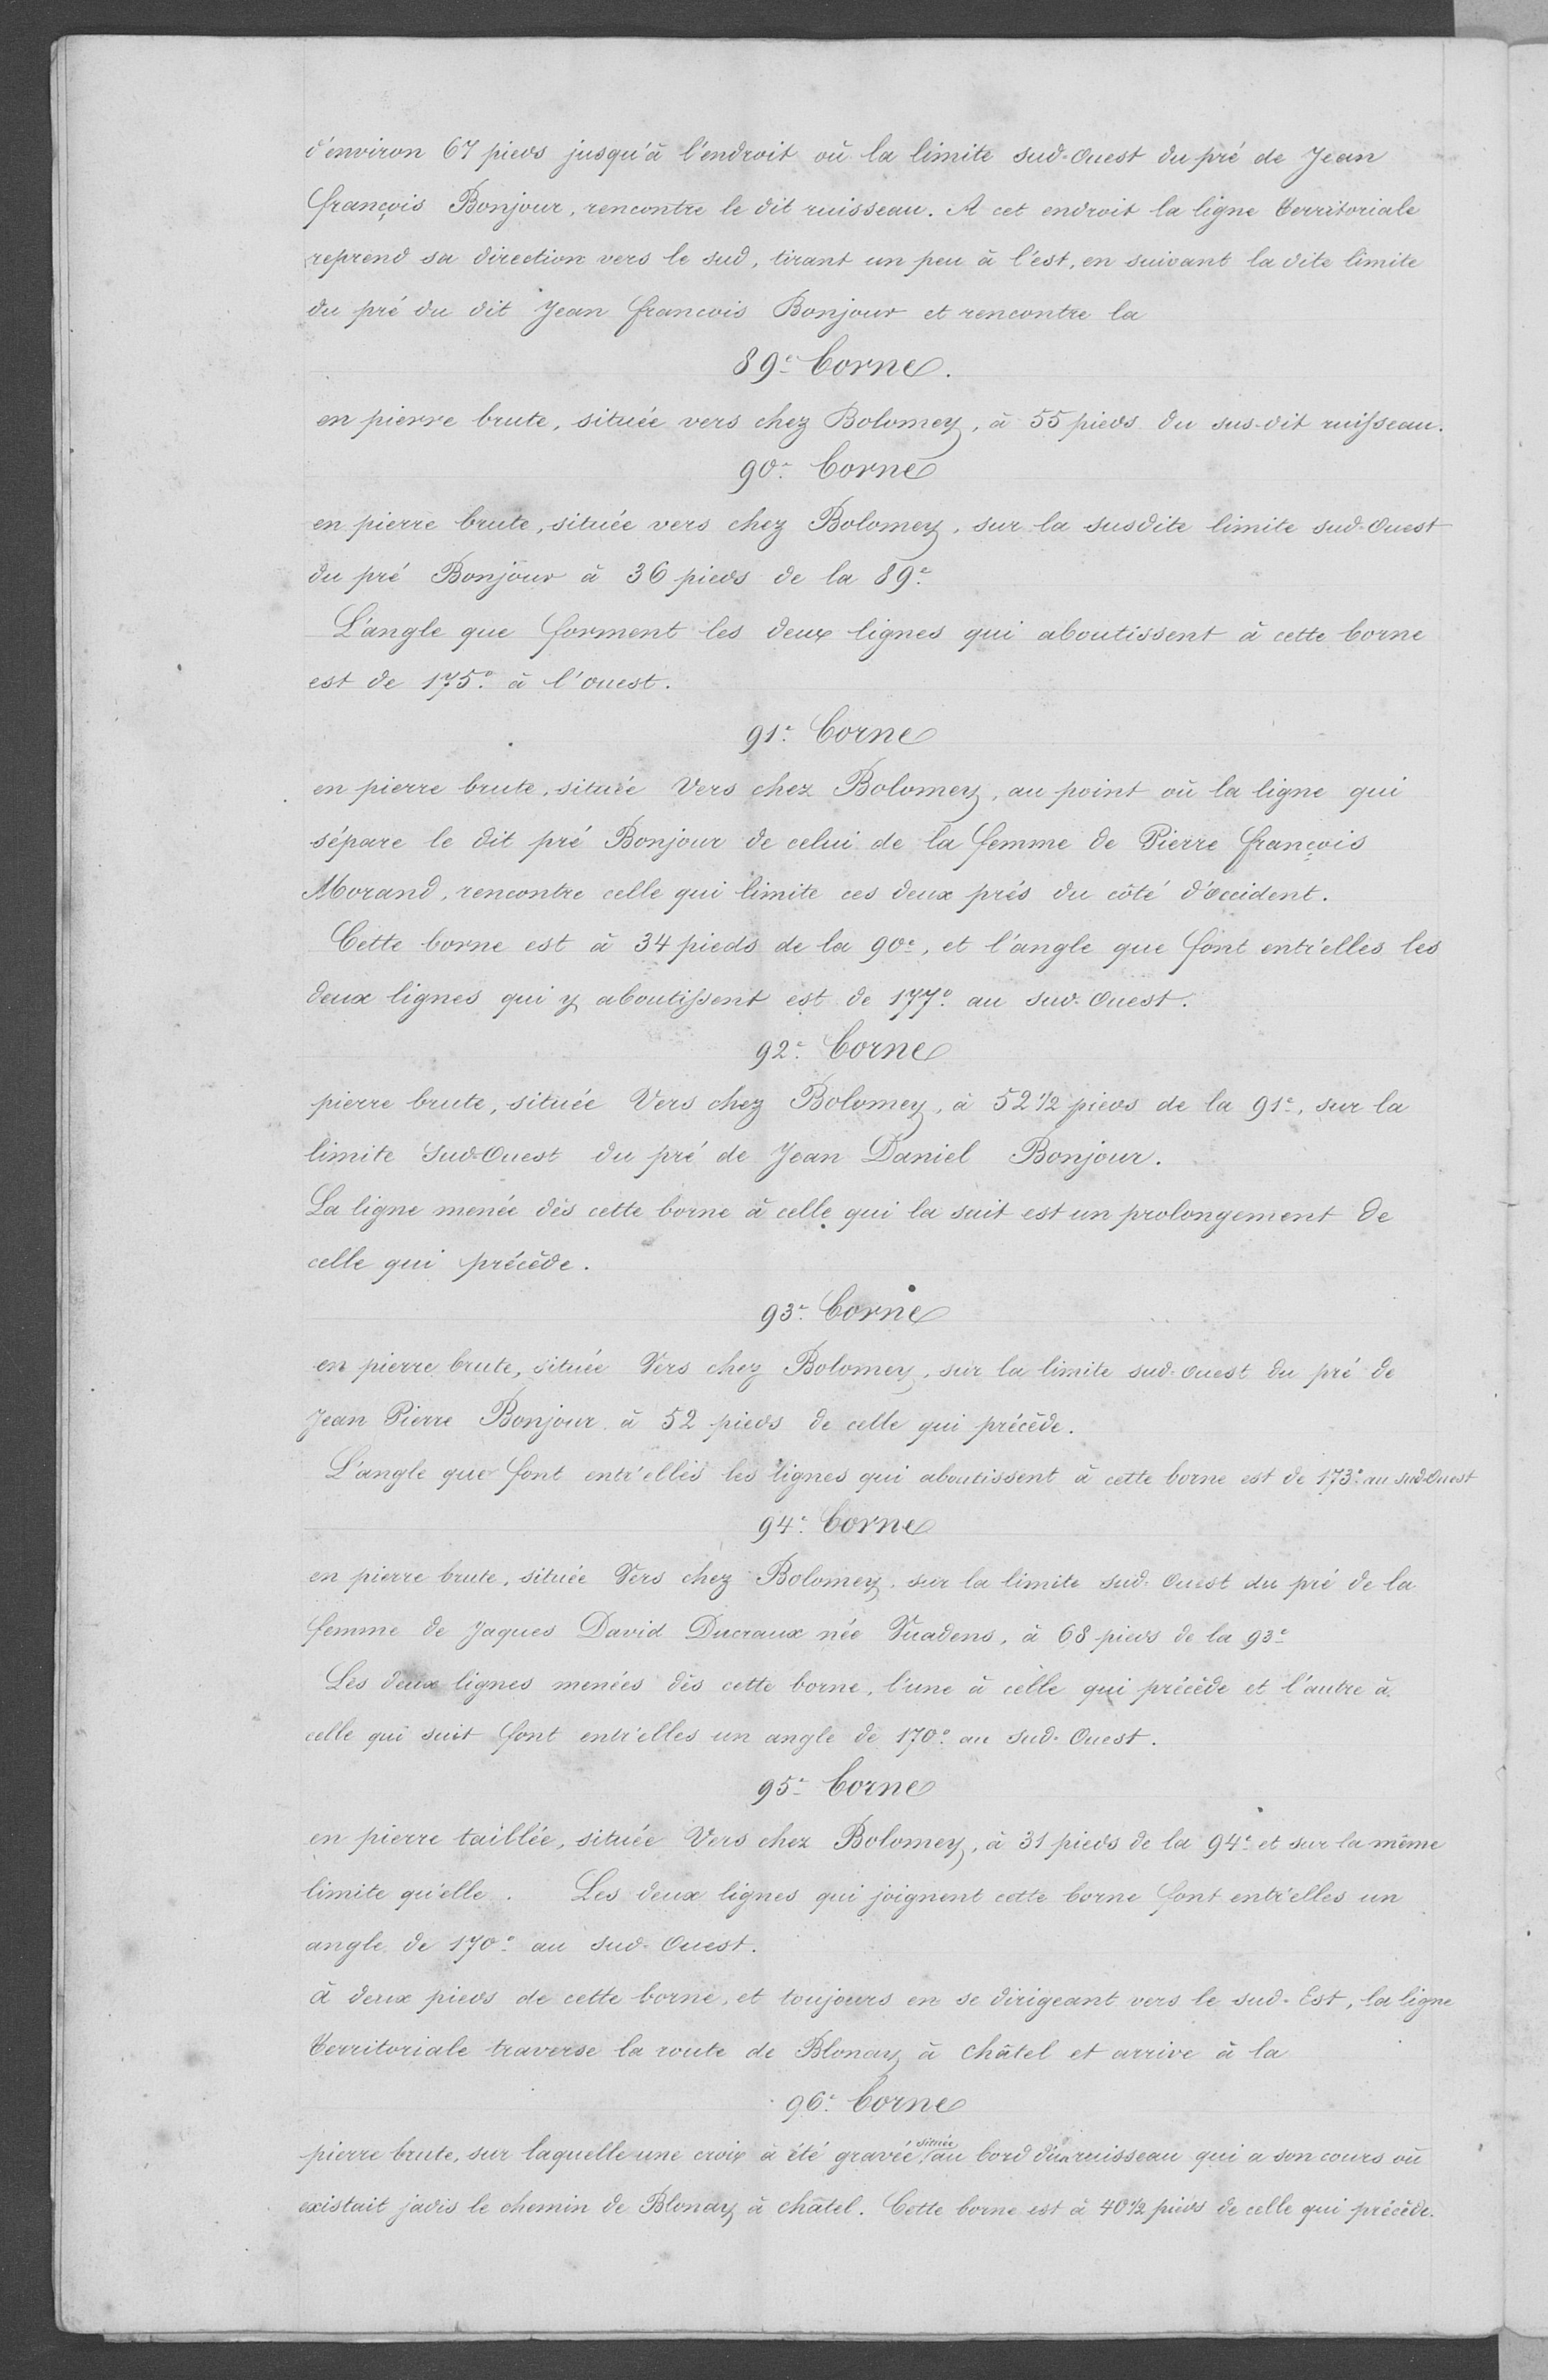 d'environ 67 pieds jusqu'à l'endroit où la limite sud-Ouest du pré de Jean
François Bonjour, rencontre le dit ruisseau. A cet endroit la ligne territoriale
reprend sa direction vers le sud, tirant un peu à l'est, en suivant la dite limite
du pré du dit Jean Francois Bonjour et rencontre la
89e borne.
en pierre brute, située vers chez Bolomey, à 55 pieds du sus-dit ruisseau.
90e borne
en pierre brute, située vers chez Bolomey, sur la susdite limite sud-Ouest
du pré Bonjour à 36 pieds de la 89e
L'angle que forment les deux lignes qui aboutissent à cette borne
est de 175° à l'ouest.
91e borne
en pierre brute, située Vers chez Bolomey, au point où la ligne qui
sépare le dit pré Bonjour de celui de la femme de Pierre François
Morand, rencontre celle qui limite ces deux prés du côté d'occident.
Cette borne est à 34 pieds de la 90e, et l'angle que font entr'elles les
deux lignes qui y aboutissent est de 177° au sud-Ouest.
92e borne
pierre brute, située Vers chez Bolomey, à 52 1/2 pieds de la 91e, sur la
limite Sud-Ouest du pré de Jean Daniel Bonjour.
La ligne menée dès cette borne à celle qui la suit est un prolongement de
celle qui précède.
93e borne
en pierre brute, située Vers chez Bolomey, sur la limite sud-ouest du pré de
Jean Pierre Bonjour à 52 pieds de celle qui précède.
L'angle que font entr'elles les lignes qui aboutissent à cette borne est de 173° au sud-Ouest
94e borne
en pierre brute, située Vers chez Bolomey, sur la limite sud-Ouest du pré de la
femme de Jaques David Ducraux née Vuadens, à 68 pieds de la 93e
Les deux lignes menées dès cette borne, l'une à celle qui précède et l'autre à
celle qui suit font entr'elles un angle de 170° au Sud-Ouest.
95e borne
en pierre taillée, située Vers chez Bolomey, à 31 pieds de la 94e et sur la même
limite qu'elle. Les deux lignes qui joignent cette borne font entr'elles un
angle de 170° au sud-Ouest.
à deux pieds de cette borne, et toujours en se dirigeant vers le sud-Est, la ligne
territoriale traverse la route de Blonay à Châtel et arrive à la
96e borne
pierre brute, sur laquelle une croix a été gravée, située au bord d'un ruisseau qui a son cours où
existait jadis le chemin de Blonay à châtel. Cette borne est à 40 1/2 pieds de celle qui précède.